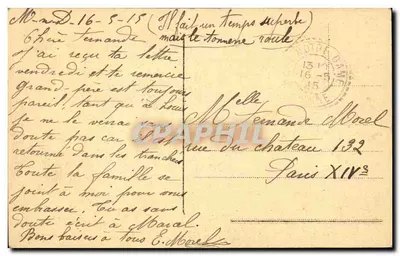 M-n-D-16-5-15 (Il fait un temps superbe
mais le tonnerre roule)
Chère Fernande
J'ai reçu ta lettre
vendredi et te remercie
Grand-père est toujours
pareil, tant qu'à Louis
je ne le verrai
doute pas car il est
retourné dans les tranchées
Toute la famille se
joint à moi pour vous
embrasser. Tu as sans
doute écrit à Marcel.
Bons baisers à tous E. Morel
16-5
15
Melle Fernande Morel
rue du chateau 132
Paris XIVe
CPARAMA